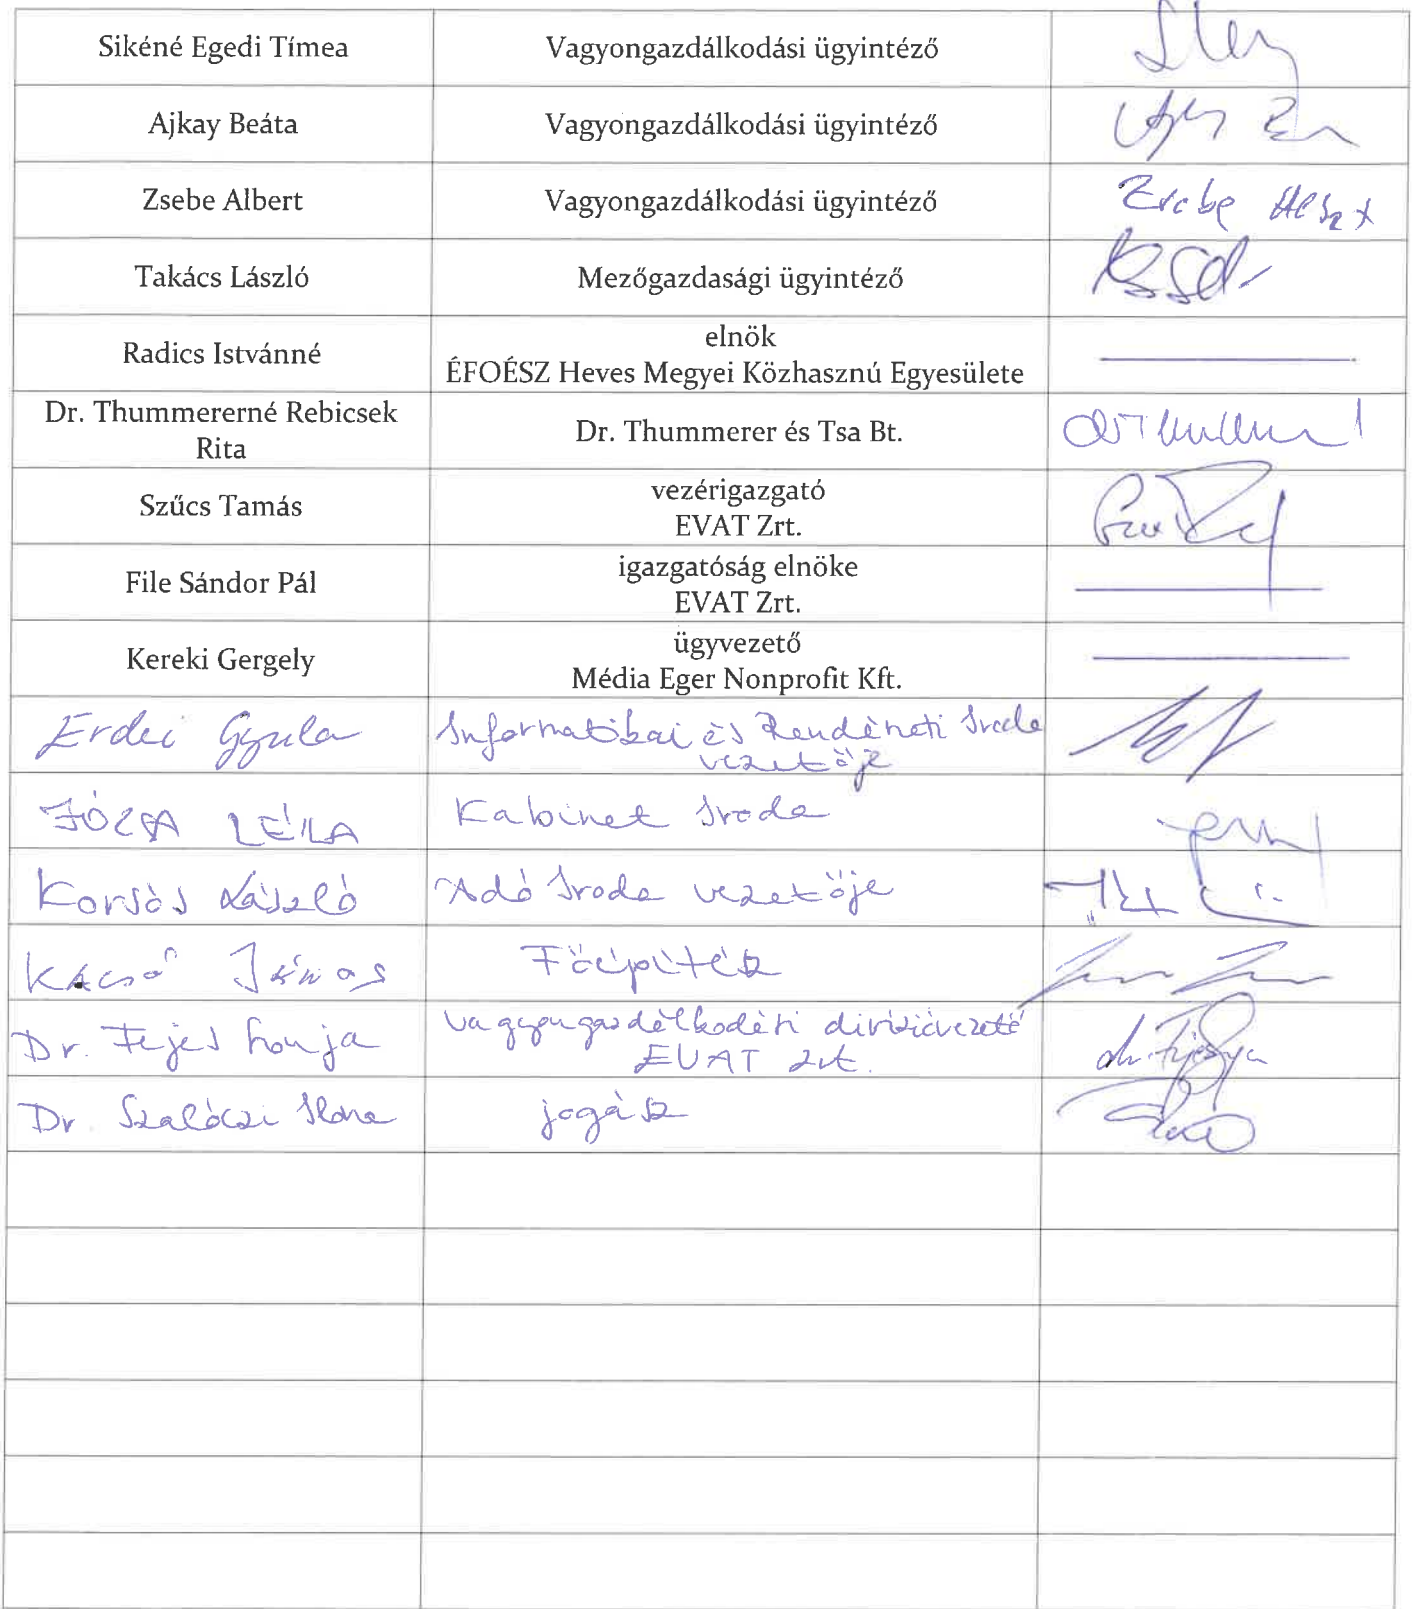 Sikéné Egedi Tímea Vagyongazdálkodási ügyintéző
Ajkay Beáta Vagyongazdálkodási ügyintéző
Zsebe Albert Vagyongazdálkodási ügyintéző Zsebe Albert
Takács László Mezőgazdasági ügyintéző
Radics Istvánné elnök
ÉFOÉSZ Heves Megyei Közhasznú Egyesülete
Dr. Thummererné Rebicsek
Rita
Dr. Thummerer és Tsa Bt.
Szűcs Tamás vezérigazgató
EVAT Zrt.
File Sándor Pál igazgatóság elnöke
EVAT Zrt.
Kereki Gergely ügyvezető
Média Eger Nonprofit Kft.
Erdei Gyula Informatikai és Rendészeti Iroda
vezetője
JÓZSA LÉILA Kabinet Iroda
Korsós László Adó Iroda vezetője
Kácsó János Főépítész
Dr. Fejes Vagyongazdálkodási divízióvezető
EVAT Zrt.
Dr. Szalóczi Ilona jogász